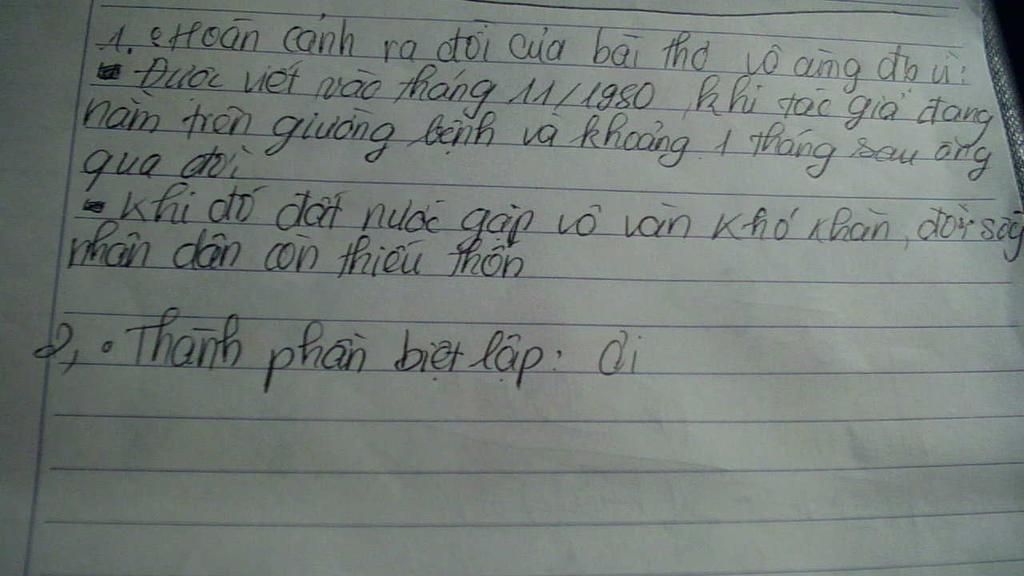 1. Hoàn cảnh ra đời của bài thơ vô cùng đb vì:
- Được viết vào tháng 11/1980, khi tác giả đang
nằm trên giường bệnh và khoảng 1 tháng sau ông
qua đời
- Khi đó đất nước gặp vô vàn khó khăn, đời sống
nhân dân còn thiếu thốn
2, • Thành phần biệt lập: ơi